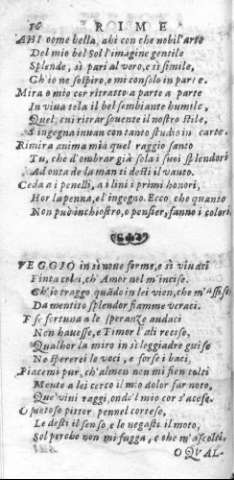 RIME
AHI come bella, ahi con che nobil'arte
Del mio bel Sol l'imagine gentile
Splende, sì pari al vero, e sì simile,
Ch'io ne sospiro, e mi consolo in parte.
Mira o mio cor ritratto a parte a parte
In viva tela il bel sembiante humile,
Quel, cui ritrar sovente il nostro stile,
S'ingegna invan con tanto studio in carte.
Rimira anima mia quel raggio santo
Tu, che d'ombrar già sola i suoi splendori
Ad onta de la man ti desti il vanto.
Ceda a i penelli, a i lini i primi honori,
Hor la penna, el'ingegno. Ecco che quanto
Non può inchiostro, o pensier, fanno i colori.
VEGGIO in sì nove forme, e sì vivaci
Finta colei, ch'Amor nel m'incise.
Ch'io traggo quãdo in lei vien, che m'
Da mentito splendor, fiamme veraci.
E se fortuna a le speranze audaci
Non havesse, e Timor l'ali recise,
Qualhor la miro in sì leggiadre guise
Ne spererei le voci, e forse i baci.
Piacemi pur, ch'almen non mi sien tolti
Mentre a lei cerco il mio dolor far noto,
Que' vini raggi, onde'l mio cor s'accese.
O pietoso pittor pennel cortese,
Le desti il senso, e le negasti il moto,
Sol perche non mi fugga, e che m'ascolti.
O QUAL-